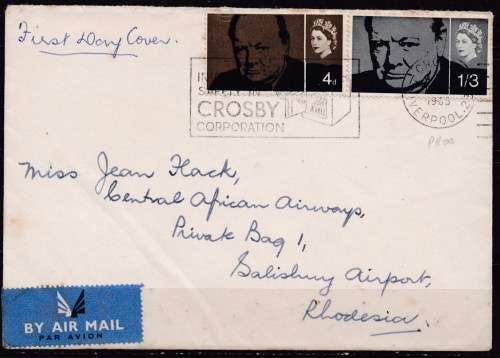 First Day Cover.
4d
1/3
IN
SAFELY IN
CROSBY
CORPORATION
1965
LIVERPOOL.
Miss Jean Hack,
Central African Airways,
Private Bag 1,
Salisbury Airport,
Rhodesia.
BY AIR MAIL
PAR AVION